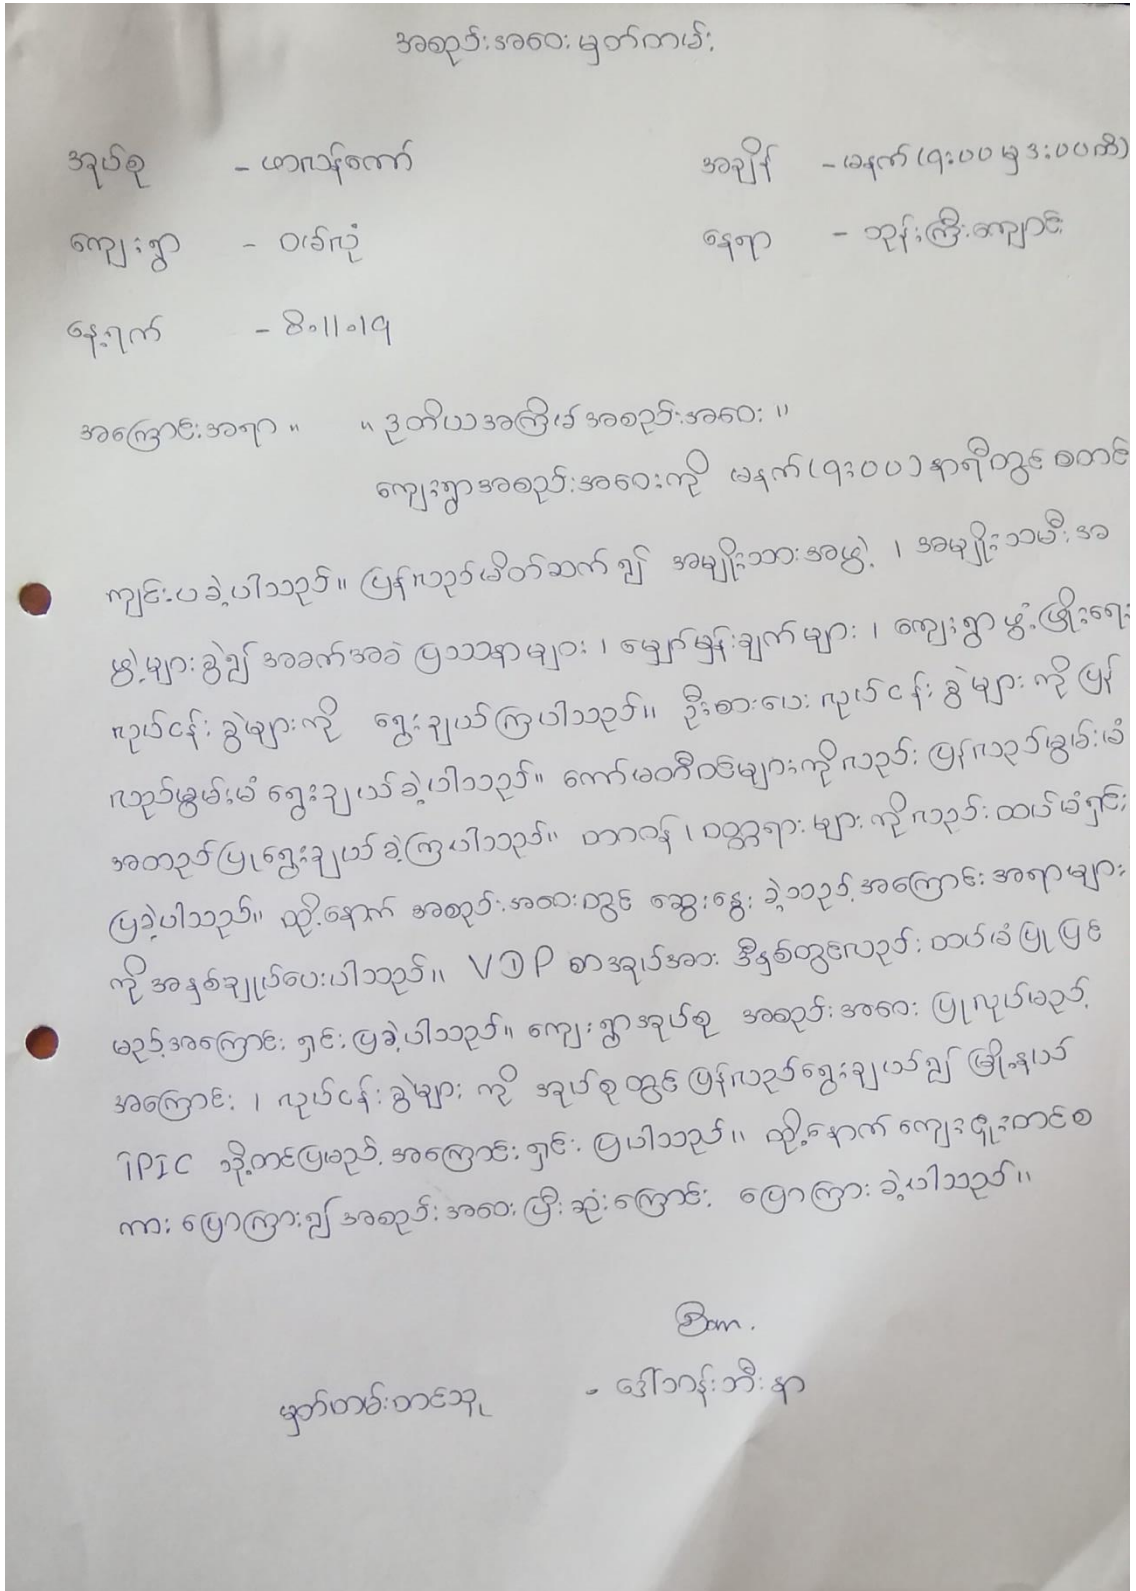 အစည်းအဝေးမှတ်တမ်း
အုပ်စု - ဟာလန်ကော် အချိန် - မနက် (၇:၀၀ မှ ဒး၀၀ ထိ)
ကျေးရွာ - ဝမ်လုံ နေရာ - ဘုန်းကြီးကျောင်း
နေ့ရက် - 8.11.19
အကြောင်းအရာ။ " ဒုတိယအကြိမ်အစည်းအဝေး "
ကျေးရွာအစည်းအဝေးကို မနက် (၇:၀၀) နာရီတွင် စတင်
ကျင်းပခဲ့ပါသည်။ ပြန်လည်မိတ်ဆက်၍ အမျိုးသားအဖွဲ့ ၊ အမျိုးသမီးအ
ဖွဲ့များခွဲ၍ အခက်အခဲ ပြဿနာများ ၊ မျှော်မှန်းချက်များ ၊ ကျေးရွာဖွံ့ဖြိုးရေး
လုပ်ငန်းခွဲများကို ရွေးချယ်ကြပါသည်။ ဦးစားပေးလုပ်ငန်းခွဲများကို ပြန်
လည်မွမ်းမံ ရွေးချယ်ခဲ့ပါသည်။ ကော်မတီဝင်များကိုလည်း ပြန်လည်မွမ်းမံ
အတည်ပြုရွေးချယ်ခဲ့ကြပါသည်။ တာဝန် ၊ ဝတ္တရားများကိုလည်း ထပ်မံရှင်း
ပြခဲ့ပါသည်။ ထို့နောက် အစည်းအဝေးတွင် ဆွေးနွေးခဲ့သည့်အကြောင်းအရာများ
ကိုအနှစ်ချုပ်ပေးပါသည်။ VDP စာအုပ်အား ဒီနှစ်တွင်လည်း ထပ်မံပြုပြင်
မည့်အကြောင်း ရှင်းပြခဲ့ပါသည်။ ကျေးရွာအုပ်စု အစည်းအဝေး ပြုလုပ်မည့်
အကြောင်း ၊ လုပ်ငန်းခွဲများကို အုပ်စုတွင်ပြန်လည်ရွေးချယ်၍ မြို့နယ်
TPIC သို့တင်ပြမည့်အကြောင်း ရှင်းပြပါသည်။ ထို့နောက် ကျေးဇူးတင်စ
ကား ပြောကြား၍ အစည်းအဝေးပြီးဆုံးကြောင်း ပြောကြားခဲ့ပါသည်။
မှတ်တမ်းတင်သူ - ဒေါ်ဘန်းဘီးနာ